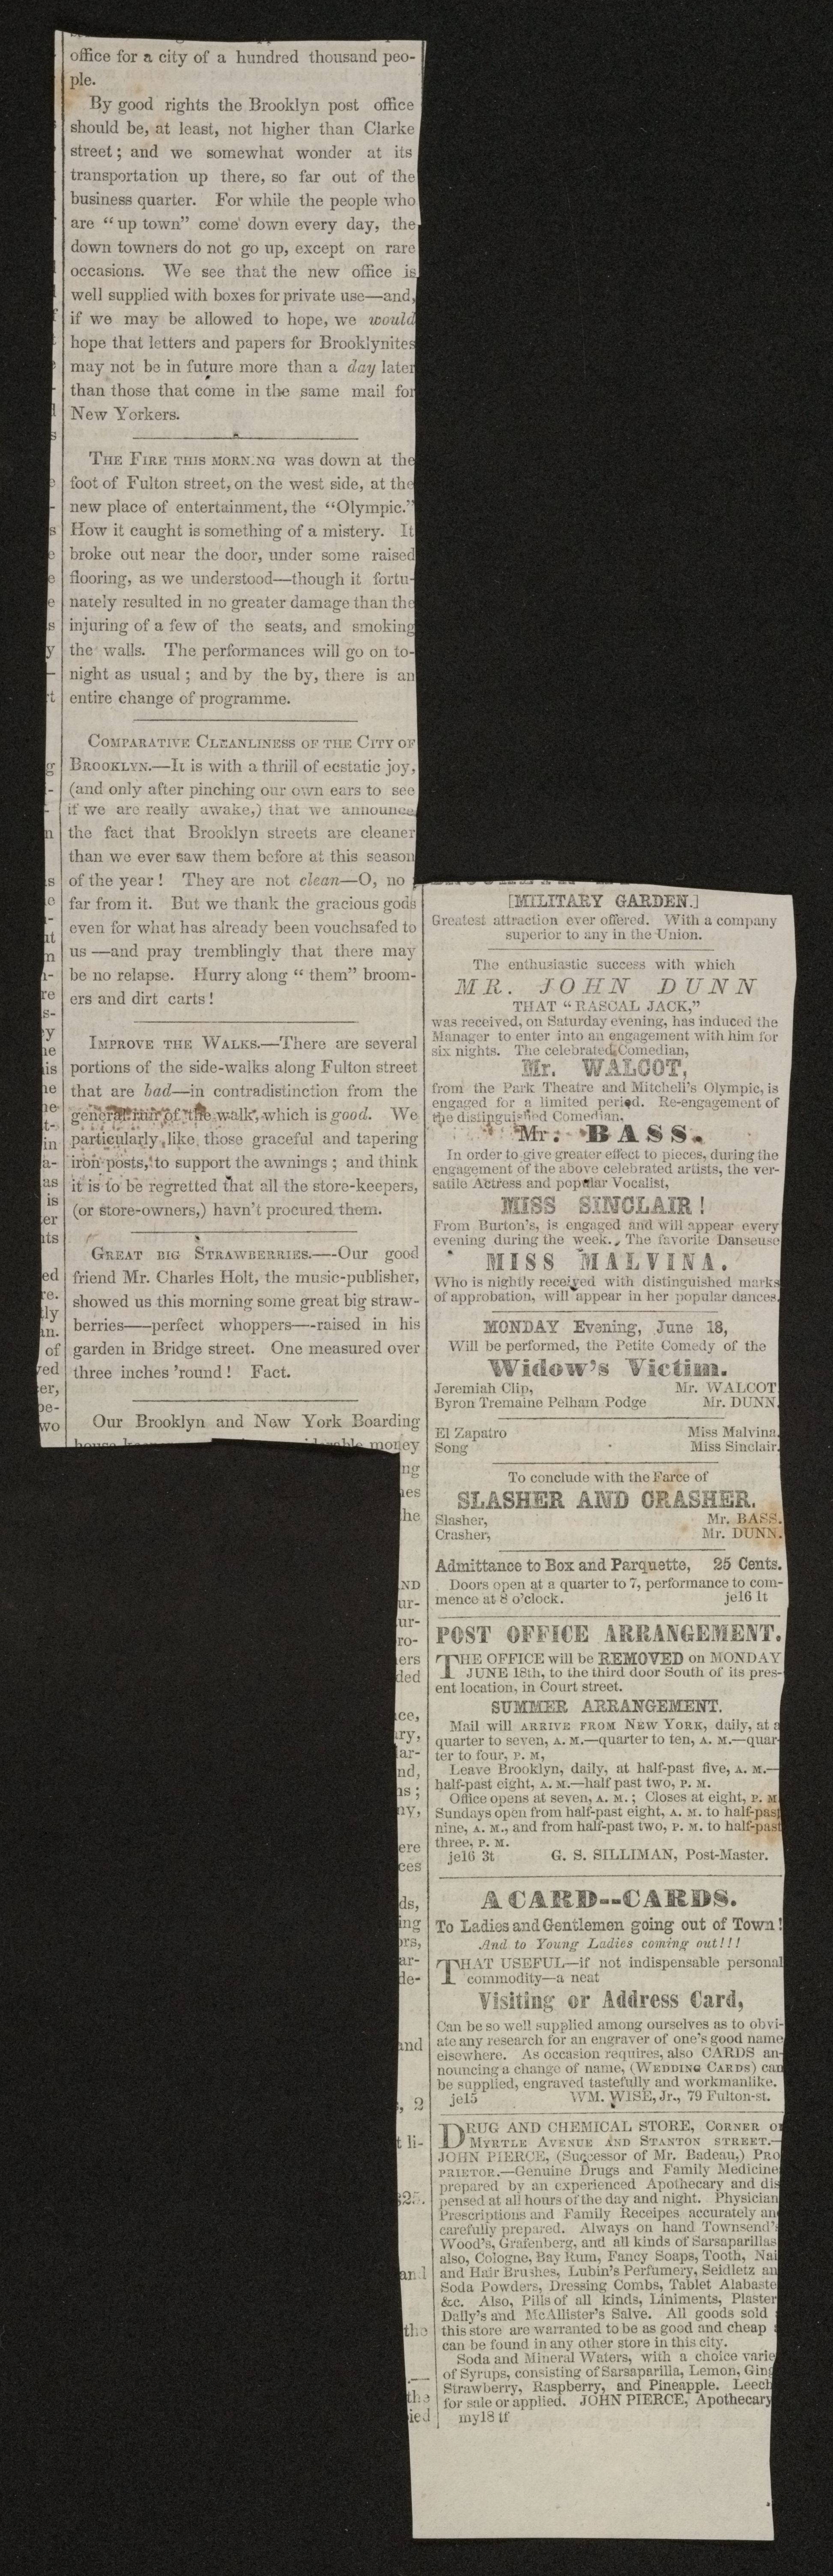 office for a city of a hundred thousand peo-
ple.
By good rights the Brooklyn post office
should be, at least, not higher than Clarke
street; and we somewhat wonder at its
transportation up there, so far out of the
business quarter. For while the people who
are “up town” come down every day, the
down towners do not go up, except on rare
occasions. We see that the new office is
well supplied with boxes for private use—and,
if we may be allowed to hope, we would
hope that letters and papers for Brooklynites
may not be in future more than a day later
than those that come in the same mail for
New Yorkers.
THE FIRE THIS MORN.NG was down at the
foot of Fulton street, on the west side, at the
new place of entertainment, the “Olympic.”
How it caught is something of a mistery. It
broke out near the door, under some raised
flooring, as we understood—though it fortu-
nately resulted in no greater damage than the
injuring of a few of the seats, and smoking
the walls. The performances will go on to-
night as usual; and by the by, there is an
entire change of programme.
COMPARATIVE CLEANLINESS OF THE CITY OF
BROOKLYN.—It is with a thrill of ecstatic joy,
(and only after pinching our own ears to see
if we are really awake,) that we announce
the fact that Brooklyn streets are cleaner
than we ever saw them before at this season
of the year! They are not clean—O, no
far from it. But we thank the gracious gods
even for what has already been vouchsafed to
us—and pray tremblingly that there may
be no relapse. Hurry along “them” broom-
ers and dirt carts!
IMPROVE THE WALKS.—There are several
portions of the side-walks along Fulton street
that are bad—in contradistinction from the
general run of the walk, which is good. We
particularly like those graceful and tapering
iron posts, to support the awnings; and think
it is to be regretted that all the store-keepers,
(or store-owners,) havn't procured them.
GREAT BIG STRAWBERRIES.—-Our good
friend Mr. Charles Holt, the music-publisher,
showed us this morning some great big straw-
berries—-perfect whoppers—-raised in his
garden in Bridge street. One measured over
three inches 'round! Fact.
Our Brooklyn and New York Boarding
money
[MILITARY GARDEN.]
Greatest attraction ever offered. With a company
superior to any in the Union.
The enthusiastic success with which
MR. JOHN DUNN
THAT “RASCAL JACK,”
was received, on Saturday evening, has induced the
Manager to enter into an engagement with him for
six nights. The celebrated Comedian,
Mr. WALCOT,
from the Park Theatre and Mitchell's Olympic, is
engaged for a limited period. Re-engagement of
the distinguished Comedian,
Mr. BASS.
In order to give greater effect to pieces, during the
engagement of the above celebrated artists, the ver-
satile Actress and popular Vocalist,
MISS SINCLAIR!
From Burton's, is engaged and will appear every
evening during the week. The favorite Danseuse
MISS MALVINA.
Who is nightly received with distinguished marks
of approbation, will appear in her popular dances.
MONDAY Evening, June 18,
Will be performed, the Petite Comedy of the
Widow's Victim.
Jeremiah Clip, Mr. WALCOT
Byron Tremaine Pelham Podge Mr. DUNN.
El Zapatro Miss Malvina.
Song Miss Sinclair.
To conclude with the Farce of
SLASHER AND CRASHER.
Slasher, Mr. BASS.
Crasher, Mr. DUNN.
Admittance to Box and Parquette, 25 Cents.
Doors open at a quarter to 7, performance to com-
mence at 8 o'clock. je16 1t
POST OFFICE ARRANGEMENT.
THE OFFICE will be REMOVED on MONDAY
JUNE 18th, to the third door South of its pres-
ent location, in Court street.
SUMMER ARRANGEMENT.
Mail will ARRIVE FROM NEW YORK, daily, at a
quarter to seven, A. M.—quarter to ten, A. M.—quar-
ter to four, P. M,
Leave Brooklyn, daily, at half-past five, A. M.—
half-past eight, A. M.—half past two, P. M.
Office opens at seven, A. M.; Closes at eight, P. M
Sundays open from half-past eight, A. M. to half-past
nine, A. M., and from half-past two, P. M. to half-past
three, P. M.
je16 3t G. S. SILLIMAN, Post-Master.
A CARD--CARDS.
To Ladies and Gentlemen going out of Town!
And to Young Ladies coming out!!!
THAT USEFUL—if not indispensable personal
commodity—a neat
Visiting or Address Card,
Can be so well supplied among ourselves as to obvi-
ate any research for an engraver of one's good name
elsewhere. As occasion requires, also CARDS an-
nouncing a change of name, (WEDDING CARDS) can
be supplied, engraved tastefully and workmanlike.
je15 WM. WISE, Jr., 79 Fulton-st.
DRUG AND CHEMICAL STORE, CORNER OF
MYRTLE AVENUE AND STANTON STREET.—
JOHN PIERCE, (Successor of Mr. Badeau,) PRO
PRIETOR.—Genuine Drugs and Family Medicine
prepared by an experienced Apothecary and dis
pensed at all hours of the day and night. Physician
Prescriptions and Family Receipes accurately an
carefully prepared. Always on hand Townsend's
Wood's, Grafenberg, and all kinds of Sarsaparillas
also, Cologne, Bay Rum, Fancy Soaps, Tooth, Nai
and Hair Brushes, Lubin's Perfumery, Seidletz an
Soda Powders, Dressing Combs, Tablet Alabaste
&c. Also, Pills of all kinds, Liniments, Plaster
Dally's and McAllister's Salve. All goods sold
this store are warranted to be as good and cheap
can be found in any other store in this city.
Soda and Mineral Waters, with a choice varie
of Syrups, consisting of Sarsaparilla, Lemon, Ging
Strawberry, Raspberry, and Pineapple. Leech
for sale or applied. JOHN PIERCE, Apothecary
my18 tf